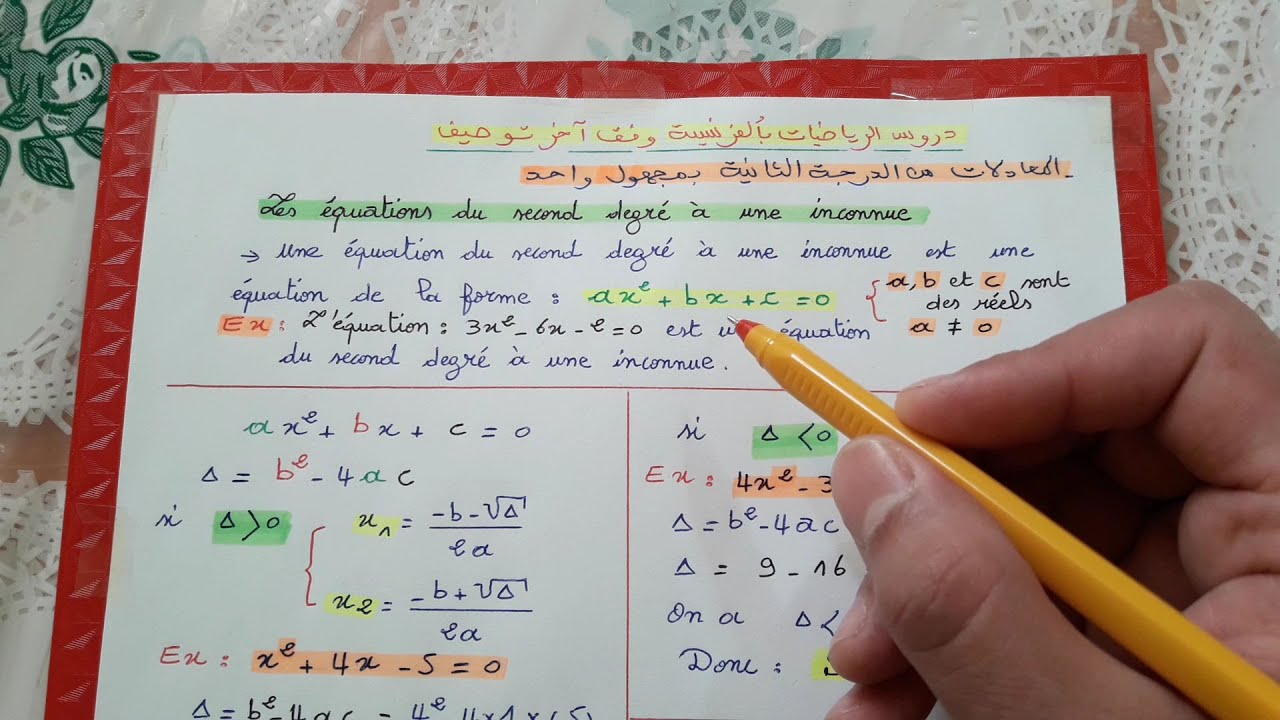 دروس الرياضيات بالفرنسية وفق آخر توصيف
المعادلات من الدرجة الثانية بمجهول واحد
Les équations du second degré à une inconnue
→ Une équation du second degré à une inconnue est une
équation de la forme : ax² + bx + c = 0
a, b et c sont
des réels
a ≠ 0
Ex : L'équation : 3x² - 6x - 2 = 0 est une équation
du second degré à une inconnue.
ax² + bx + c = 0
Δ = b² - 4ac
si Δ > 0
x₁ = (-b - √Δ) / 2a
x₂ = (-b + √Δ) / 2a
Ex : x² + 4x - 5 = 0
Δ = b² - 4ac = 4² - 4×1×(-5)
si Δ < 0
Ex : 4x² - 3
Δ = b² - 4ac
Δ = 9 - 16
On a Δ <
Donc :